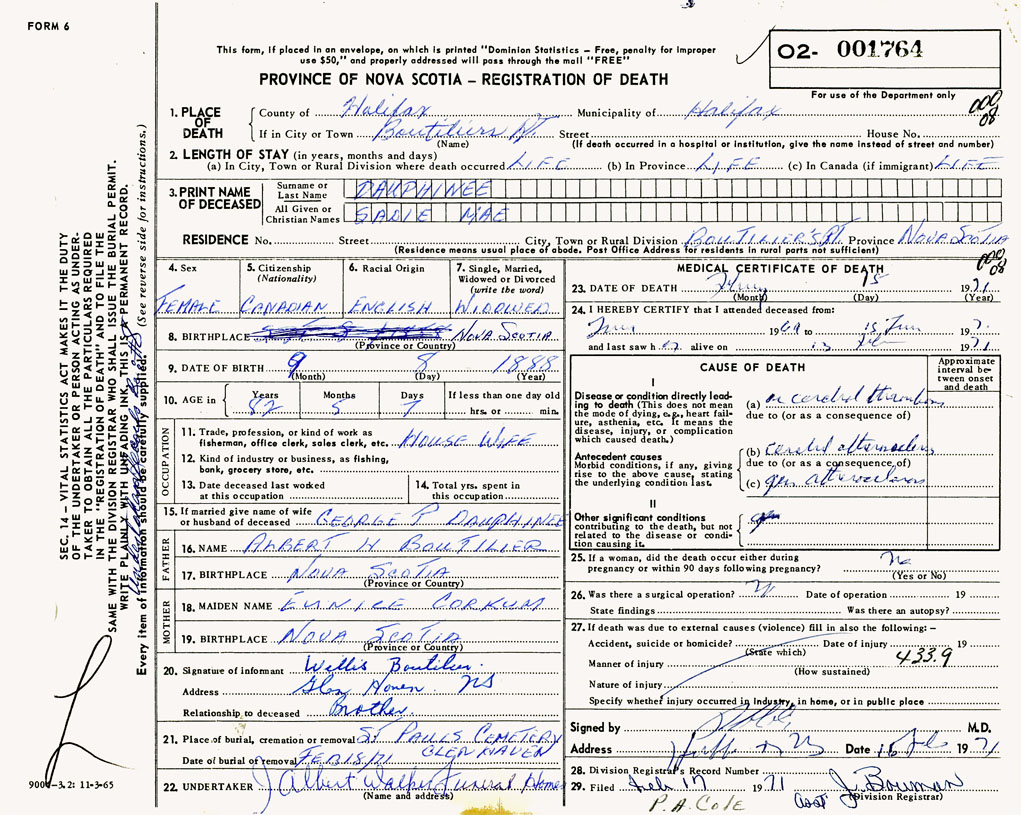 FORM 6
This form, if placed in an envelope, on which is printed "Dominion Statistics – Free, penalty for improper
use $50," and properly addressed will pass through the mail "FREE"
O2- 001764
PROVINCE OF NOVA SCOTIA – REGISTRATION OF DEATH
For use of the Department only
1. PLACE OF DEATH
County of Halifax Municipality of Halifax
000
08
If in City or Town Boutiliers Pt. Street House No.
(Name) (If death occurred in a hospital or institution, give the name instead of street and number)
2. LENGTH OF STAY (in years, months and days)
(a) In City, Town or Rural Division where death occurred LIFE (b) In Province LIFE (c) In Canada (if immigrant) LIFE
3. PRINT NAME OF DECEASED
Surname or Last Name DAUPHINEE
All Given or Christian Names SADIE MAE
RESIDENCE No. Street City, Town or Rural Division BOUTILIER'S PT. Province NOVA SCOTIA
(Residence means usual place of abode. Post Office Address for residents in rural parts not sufficient)
000
08
4. Sex FEMALE
5. Citizenship (Nationality) CANADIAN
6. Racial Origin ENGLISH
7. Single, Married, Widowed or Divorced (write the word) WIDOWED
8. BIRTHPLACE NOVA SCOTIA
(Province or Country)
9. DATE OF BIRTH 9 8 1888
(Month) (Day) (Year)
10. AGE in Years 82 Months 5 Days 7 If less than one day old hrs. or min.
OCCUPATION
11. Trade, profession, or kind of work as fisherman, office clerk, sales clerk, etc. HOUSE WIFE
12. Kind of industry or business, as fishing, bank, grocery store, etc.
13. Date deceased last worked at this occupation
14. Total yrs. spent in this occupation
15. If married give name of wife or husband of deceased GEORGE P DAUPHINEE
FATHER
16. NAME ALBERT H BOUTILIER
17. BIRTHPLACE NOVA SCOTIA
(Province or Country)
MOTHER
18. MAIDEN NAME EUNICE CORKUM
19. BIRTHPLACE NOVA SCOTIA
(Province or Country)
20. Signature of informant Willis Boutilier.
Address Glen Haven NS
Relationship to deceased Brother.
21. Place of burial, cremation or removal ST PAULS CEMETERY
GLEN HAVEN
Date of burial or removal FEB 18/71
22. UNDERTAKER J Albert Walker Funeral Home
(Name and address)
MEDICAL CERTIFICATE OF DEATH
23. DATE OF DEATH 15 1971
(Month) (Day) (Year)
24. I HEREBY CERTIFY that I attended deceased from:
19 to 15 197
and last saw her alive on 1971
CAUSE OF DEATH
Approximate interval between onset and death
I
Disease or condition directly leading to death (This does not mean the mode of dying, e.g., heart failure, asthenia, etc. It means the disease, injury, or complication which caused death.)
(a) cerebral thrombosis
due to (or as a consequence of)
Antecedent causes
Morbid conditions, if any, giving rise to the above cause, stating the underlying condition last.
(b) cerebral
due to (or as a consequence of)
(c) gen
II
Other significant conditions contributing to the death, but not related to the disease or condition causing it.
25. If a woman, did the death occur either during pregnancy or within 90 days following pregnancy? No
(Yes or No)
26. Was there a surgical operation? Date of operation 19
State findings Was there an autopsy?
27. If death was due to external causes (violence) fill in also the following: –
Accident, suicide or homicide? Date of injury 19
(State which)
433.9
Manner of injury
(How sustained)
Nature of injury
Specify whether injury occurred in Industry, in home, or in public place
Signed by M.D.
Address Date 16 Feb 1971
28. Division Registrar's Record Number
29. Filed Feb 17 1971 J. Bowman
P.A. Cole Asst (Division Registrar)
SEC. 14 – VITAL STATISTICS ACT MAKES IT THE DUTY
OF THE UNDERTAKER OR PERSON ACTING AS UNDER-
TAKER TO OBTAIN ALL THE PARTICULARS REQUIRED
IN THE "REGISTRATION OF DEATH" AND TO FILE THE
SAME WITH THE DIVISION REGISTRAR WHO SHALL ISSUE THE BURIAL PERMIT.
WRITE PLAINLY WITH UNFADING INK, THIS IS A PERMANENT RECORD.
Every item of information should be carefully supplied. (See reverse side for instructions.)
900V-3.2: 11-3-65